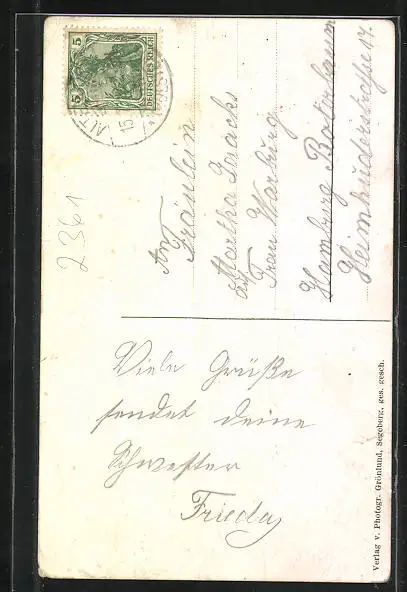 5 5
DEUTSCHES REICH
15
2361
An
Fräulein
Martha Isaacks
Frau Warburg
Hamburg
Heimhuderstrasse 17.
Viele Grüße
sendet deine
Schwester
Frieda
Verlag v. Photogr. Grönlund, Segeberg, ges. gesch.